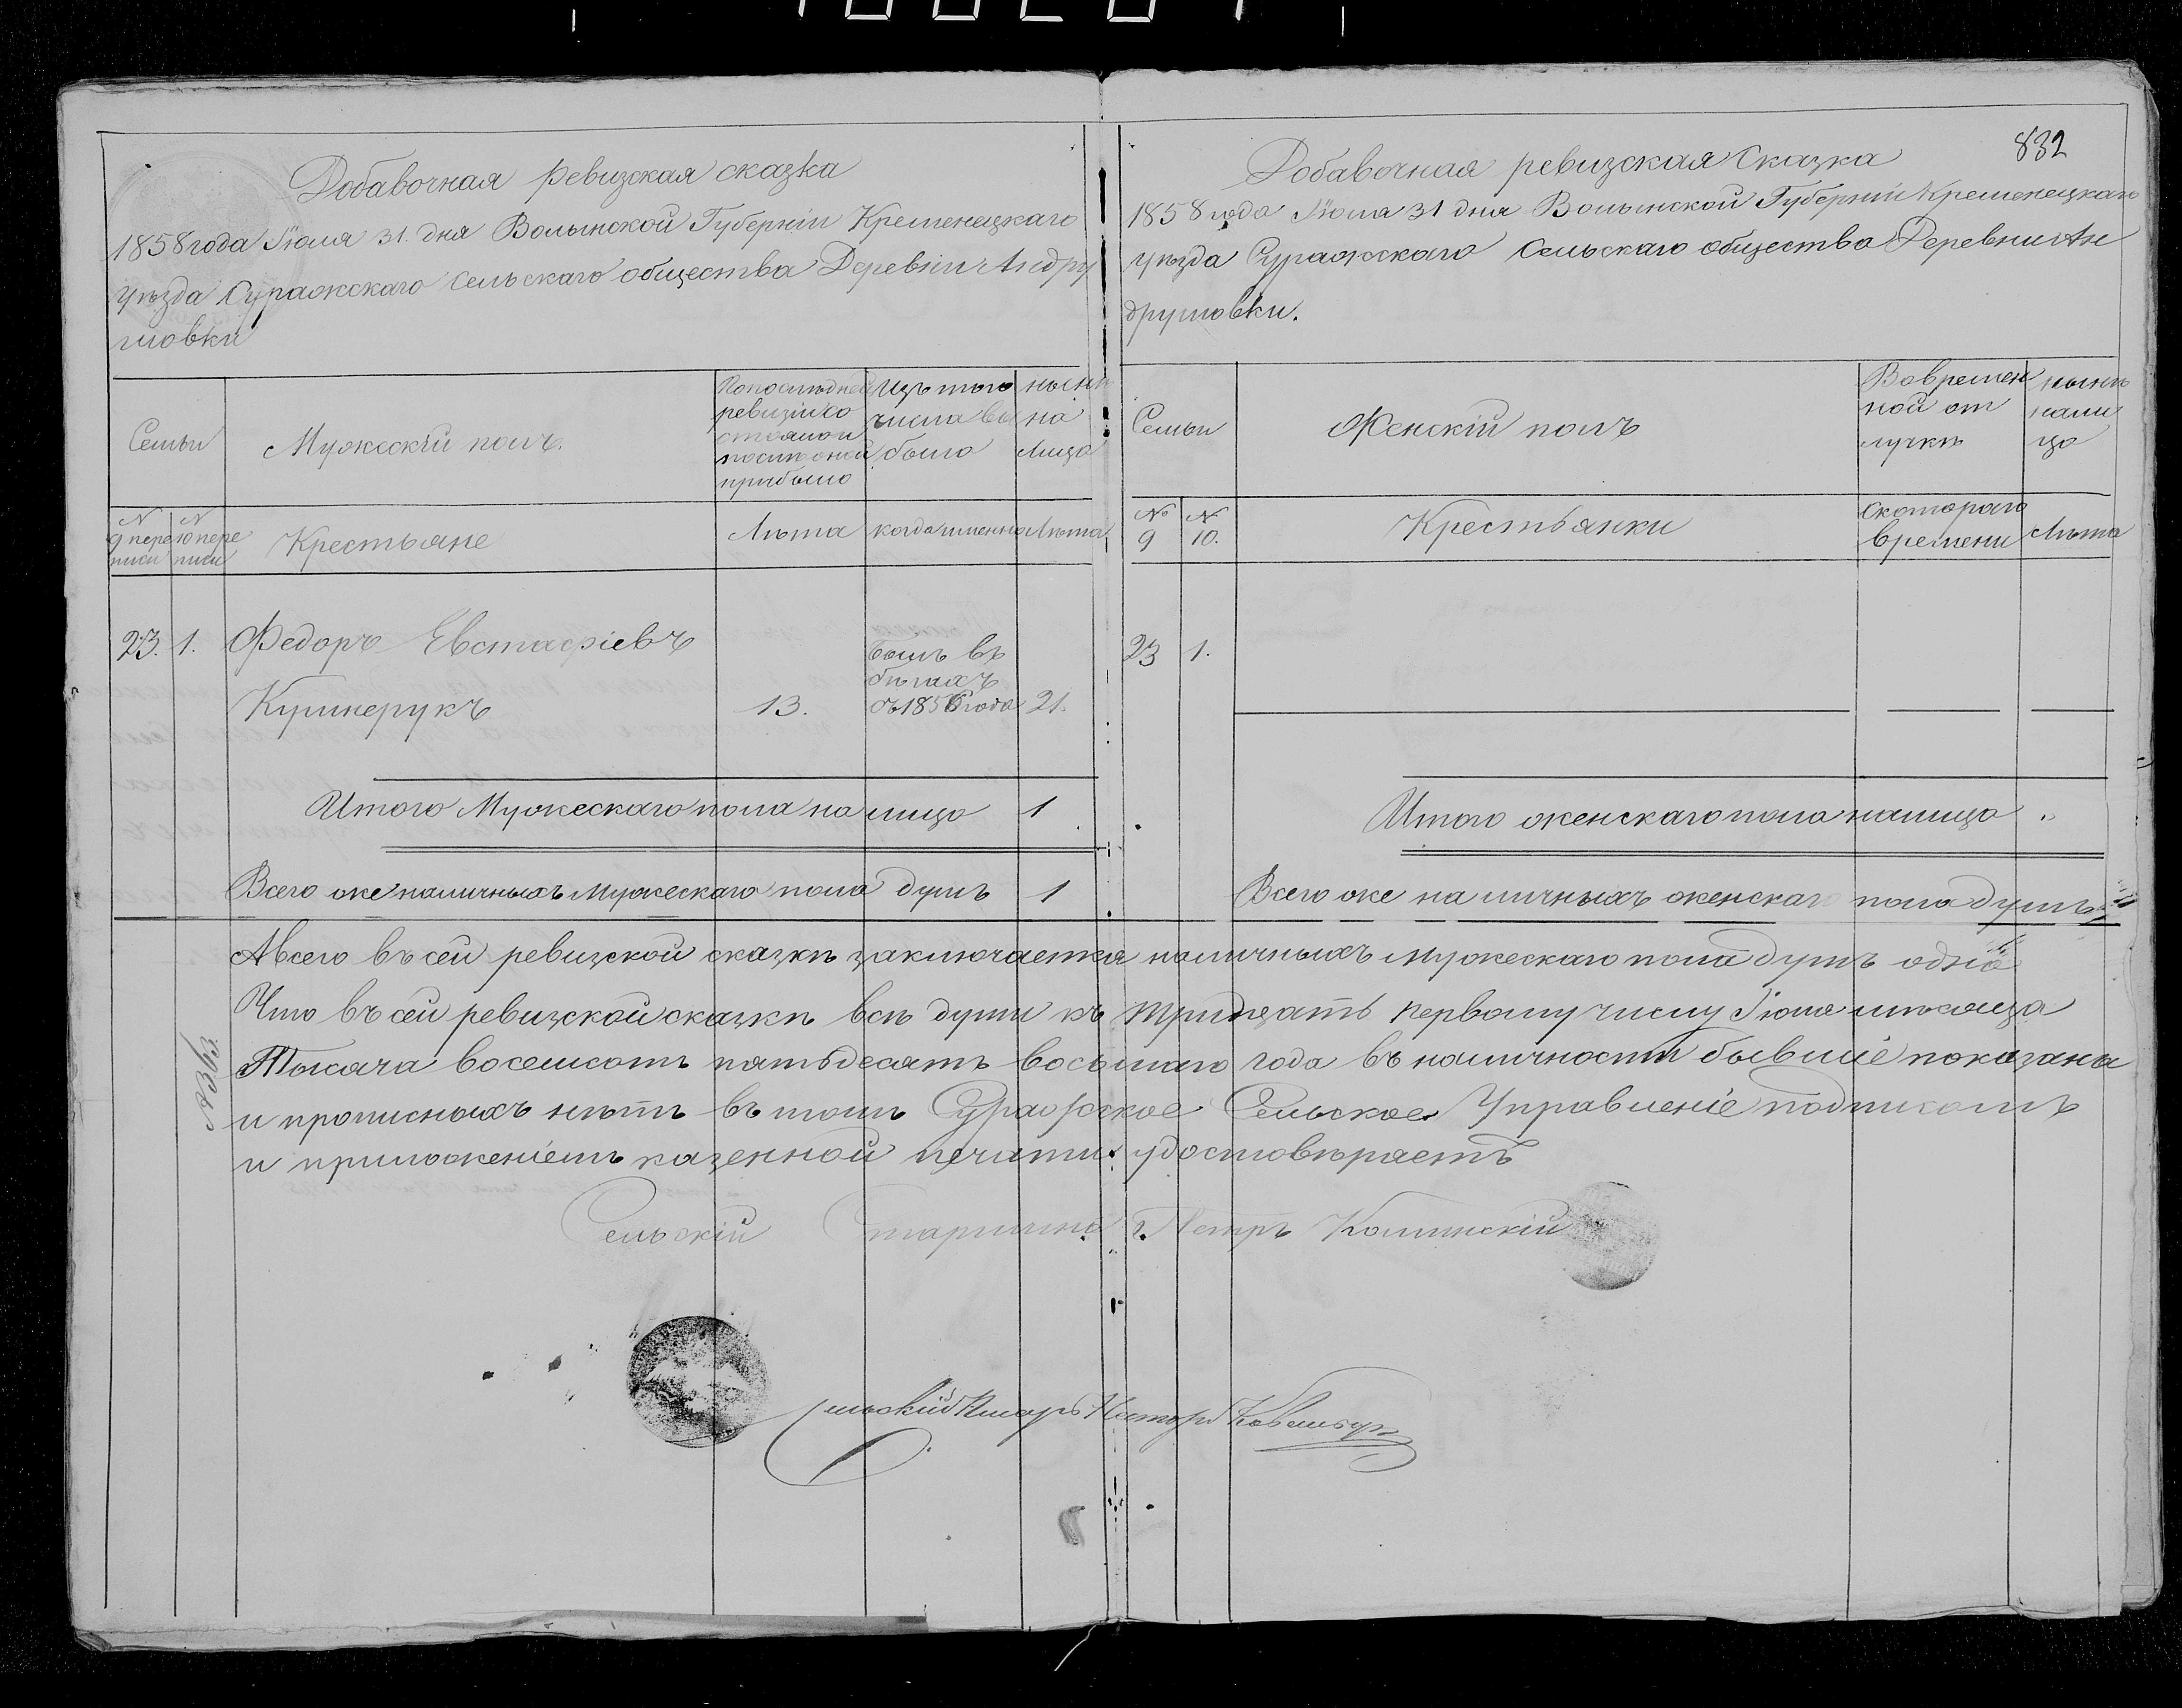 832
Добавочная ревизская сказка
1858 года Июля 31 дня Волынской Губерніи Кременецкаго
уѣзда Суражскаго сельскаго общества Деревни Андру
шовки
Семьи
Мужескій полъ.
По последней
ревизіи со
стояло и
послѣ оной
прибыло
Изъ того
числа вы
было
нынѣ
на
лицо
N
9 пере
писи
N
10 пере
писи
Крестьяне
Лѣта
когда именно
Лѣта
23. 1. Федоръ Евстафіевъ
Кушнерукъ
13.
былъ въ
бѣгахъ
съ 1856 года
21.
Итого Мужескаго пола на лицо 1
Всего же наличныхъ Мужескаго пола душъ 1
Добавочная ревизская Сказка
1858 года Июля 31 дня Волынской Губерніи Кременецкаго
уѣзда Суражскаго Сельскаго общества Деревни Ан
друшовки.
Семьи
Женскій полъ
Во времен
ной от
лучкѣ
нынѣ
нали
цо
№
9
№
10.
Крестьянки
с котораго
времени
Лѣта
23 1.
Итого женскаго пола налицо "
Всего же наличныхъ женскаго пола душъ "
А всего въ сей ревизской сказкѣ заключается наличныхъ мужескаго пола душъ одна
Что въ сей ревизской сказкѣ всѣ души къ тридцать первому числу Июля мѣсяца
Тысяча восемсотъ пятьдесятъ восьмаго года въ наличности бывшіе показаны
и прописныхъ нѣтъ въ томъ Суражское Сельское Управленіе подписомъ
и приложеніемъ казенной печати удостовѣряетъ
Сельскій Старшина Петръ Калинскій
Сельскій Писарь